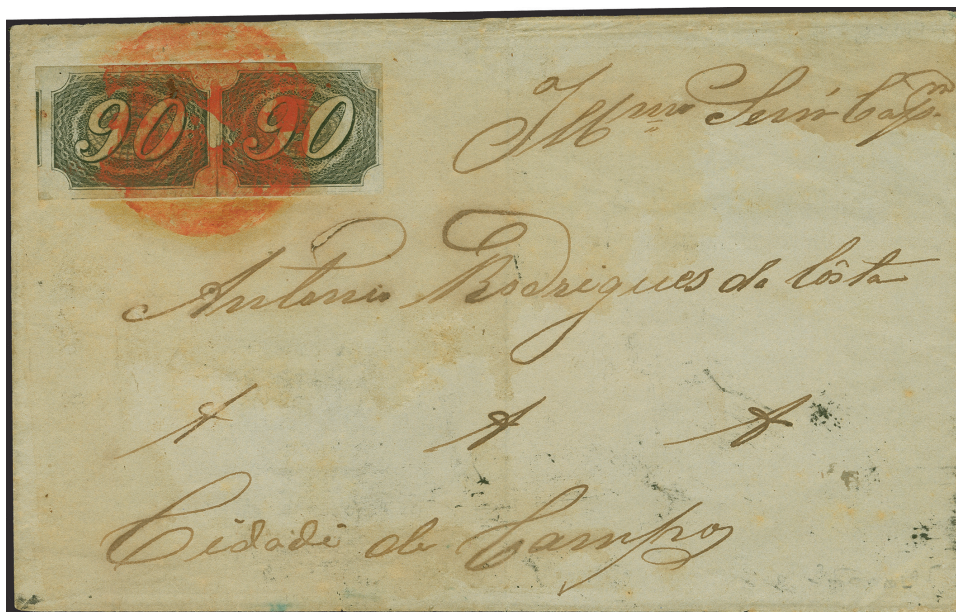 90 90
Illmo Senr Capm
Antonio Rodrigues da Costa
A A A
Cidade de Campos